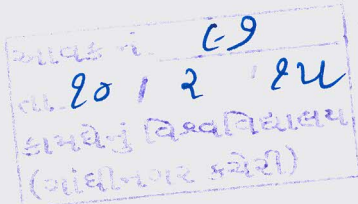 આવક નં. ૯૭
તા. ૧૦ / ૨ / ૧૫
કામધેનું વિશ્વવિદ્યાલય
(ગાંધીનગર કચેરી)